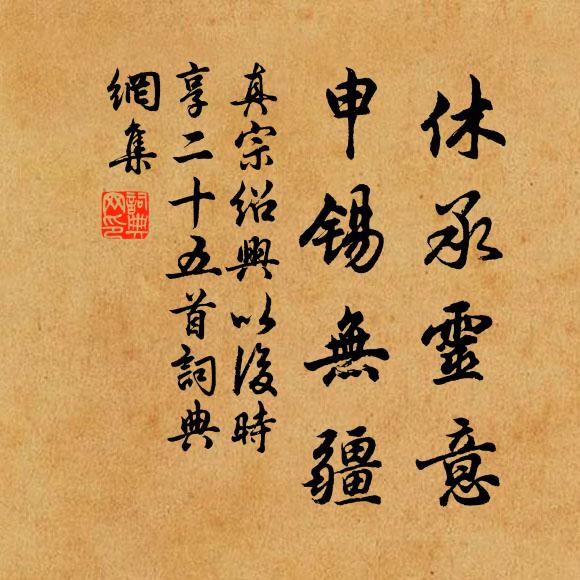 休承靈意
申錫無疆
真宗紹興以後時
享二十五首詞典
網集
詞典網印